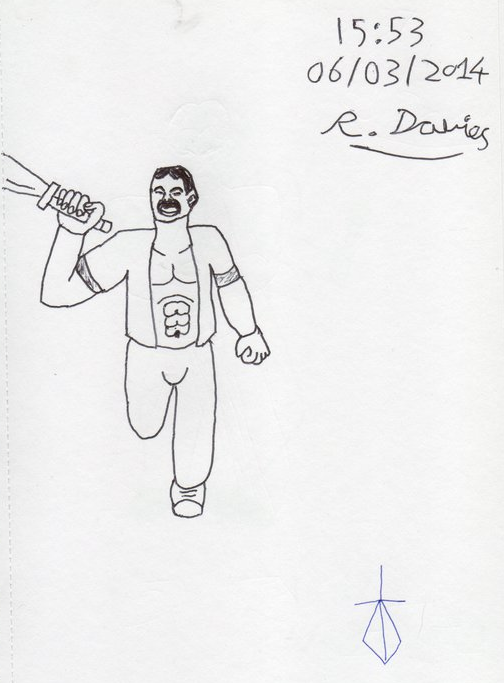 15:53
06/03/2014
R. Davies